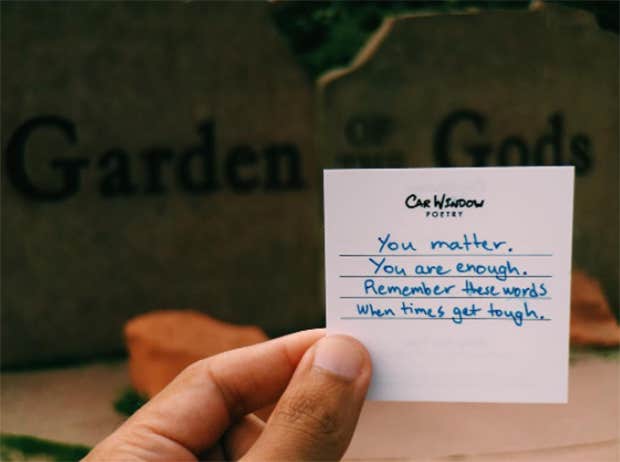 Garden
OF
THE
Gods
CAR WINDOW
POETRY
You matter.
You are enough.
Remember these words
When times get tough.